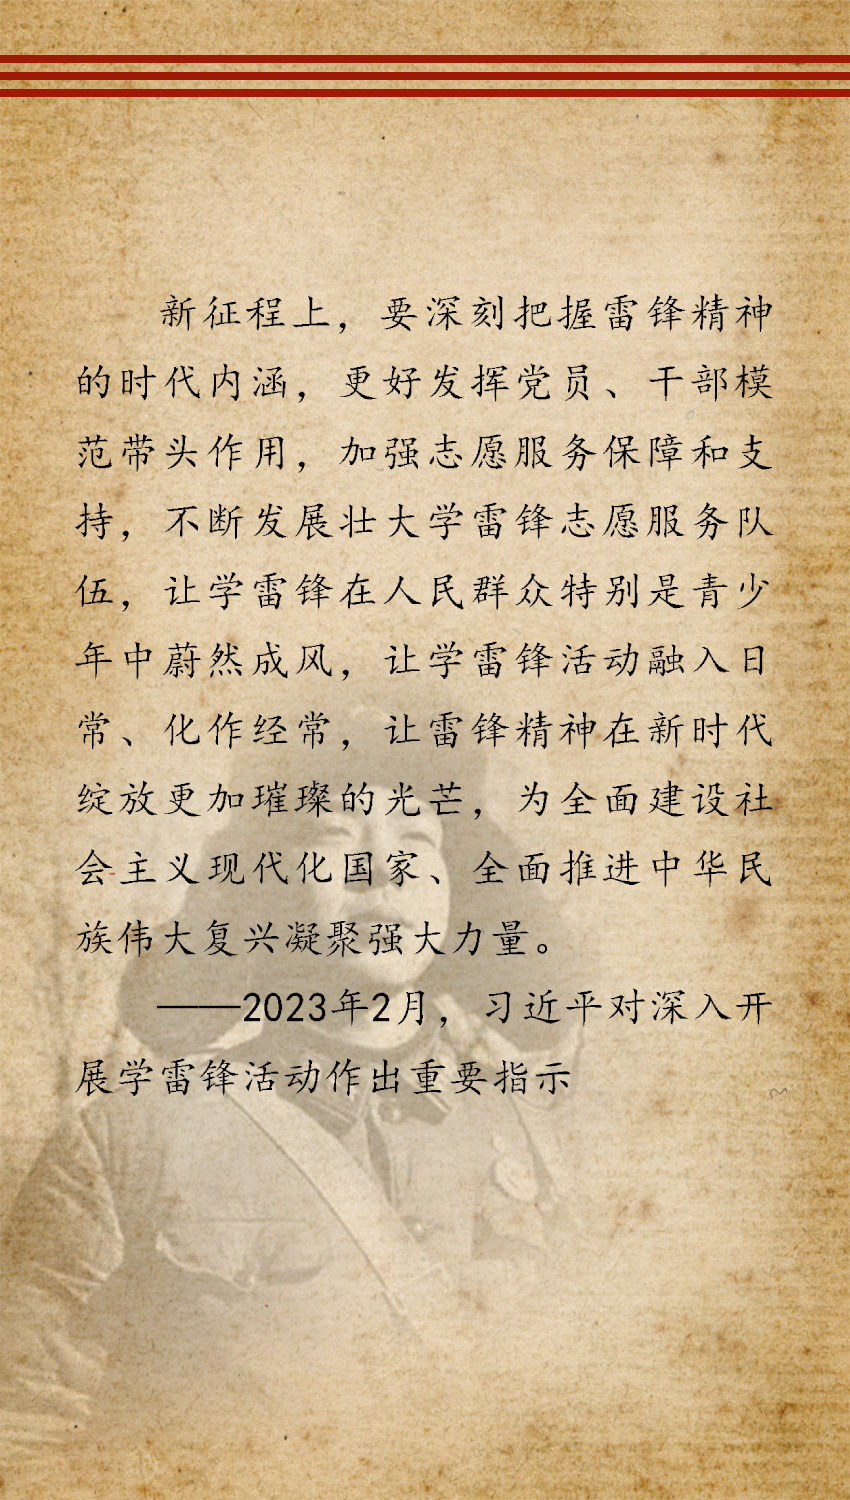 新征程上，要深刻把握雷锋精神
的时代内涵，更好发挥党员、干部模
范带头作用，加强志愿服务保障和支
持，不断发展壮大学雷锋志愿服务队
伍，让学雷锋在人民群众特别是青少
年中蔚然成风，让学雷锋活动融入日
常、化作经常，让雷锋精神在新时代
绽放更加璀璨的光芒，为全面建设社
会主义现代化国家、全面推进中华民
族伟大复兴凝聚强大力量。
——2023年2月，习近平对深入开
展学雷锋活动作出重要指示